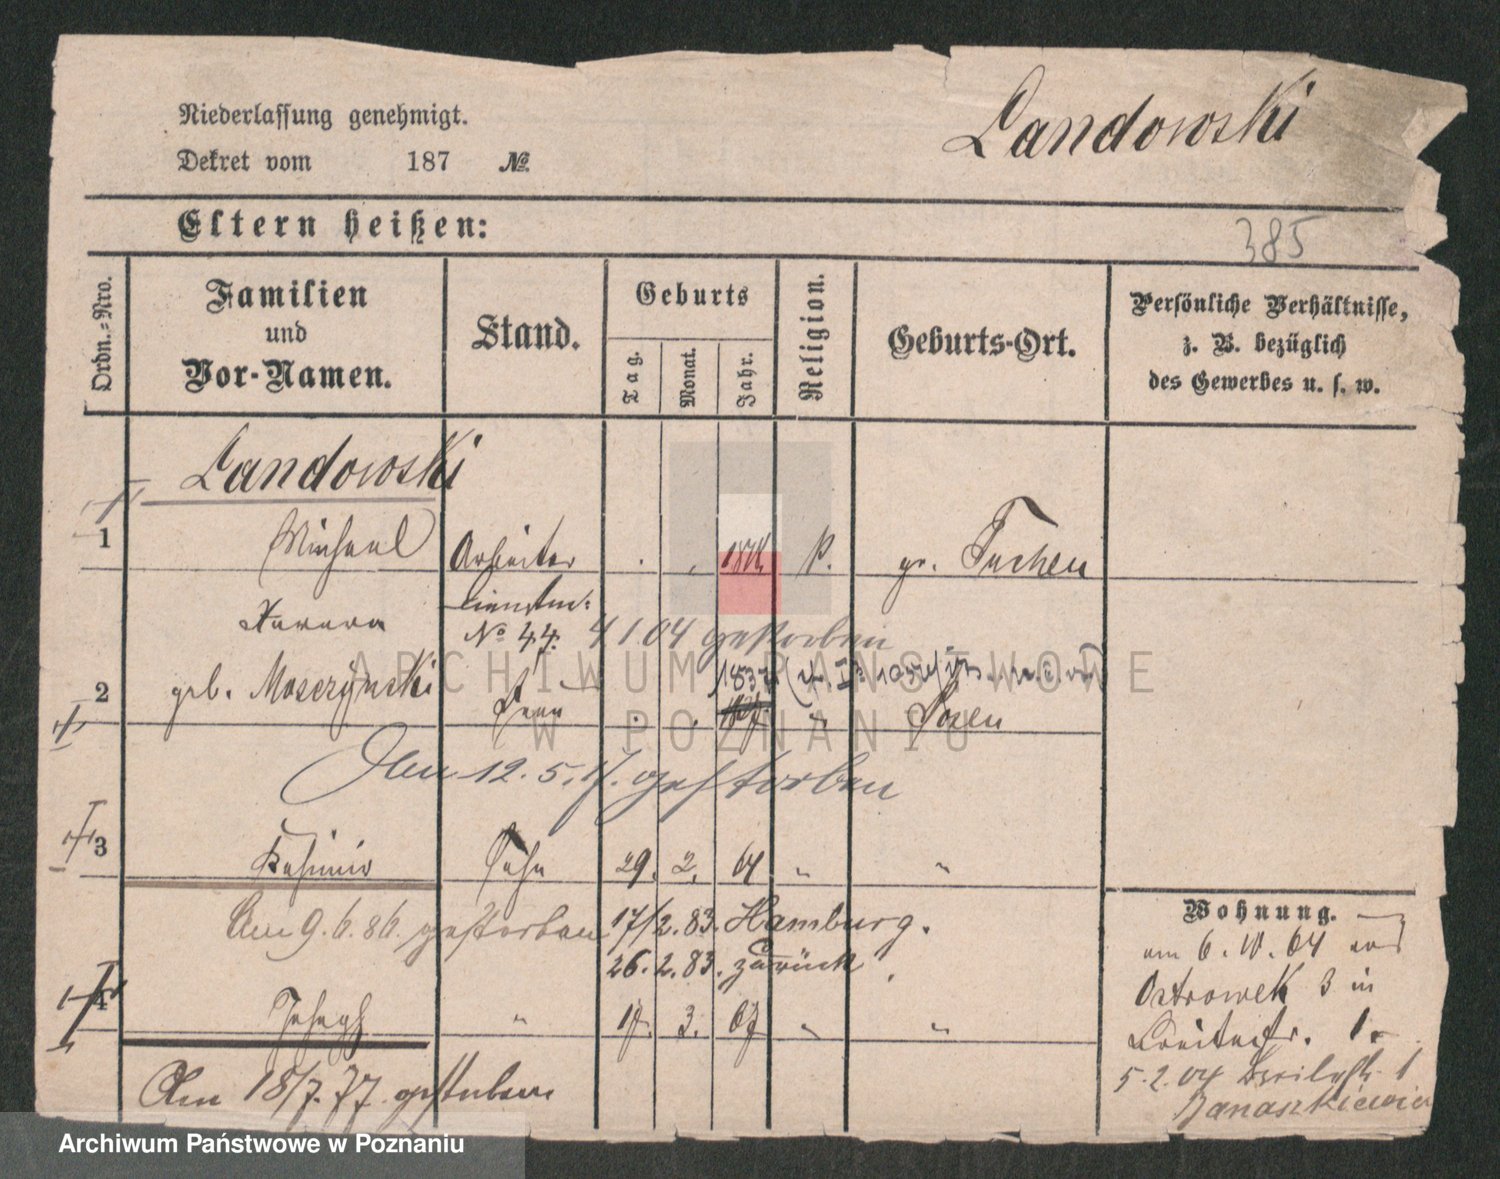 Landowski
Niederlassung genehmigt.
Dekret vom 187 No.
Eltern heißen:
385
Ordn.=Nro.
Familien
und
Vor-Namen.
Stand.
Geburts
Tag.
Monat.
Jahr.
Religion.
Geburts-Ort.
Persönliche Verhältnisse,
z. B. bezüglich
des Gewerbes u. s. w.
Landowski
1 Michael Arbeiter
Dienstm:
No 44. 4 1.04 gestorben
2 geb. Moserynski Frau 1837 Posen
Am 12. 5. 17. gestorben
3 Kasimir Sohn 29. 2. 64 " "
Am 9. 6. 86. gestorben 17/2. 83. Hamburg.
26. 2. 83. zurück
4 Joseph " 17. 3. 67 " "
Am 18/7. 77. gestorben
Wohnung.
am 6. 64
Ostrowek 3 in
Breitestr. 1.
5. 2. 04 1
Banaszkiewicz
ARCHIWUM PAŃSTWOWE
W POZNANIU
Archiwum Państwowe w Poznaniu